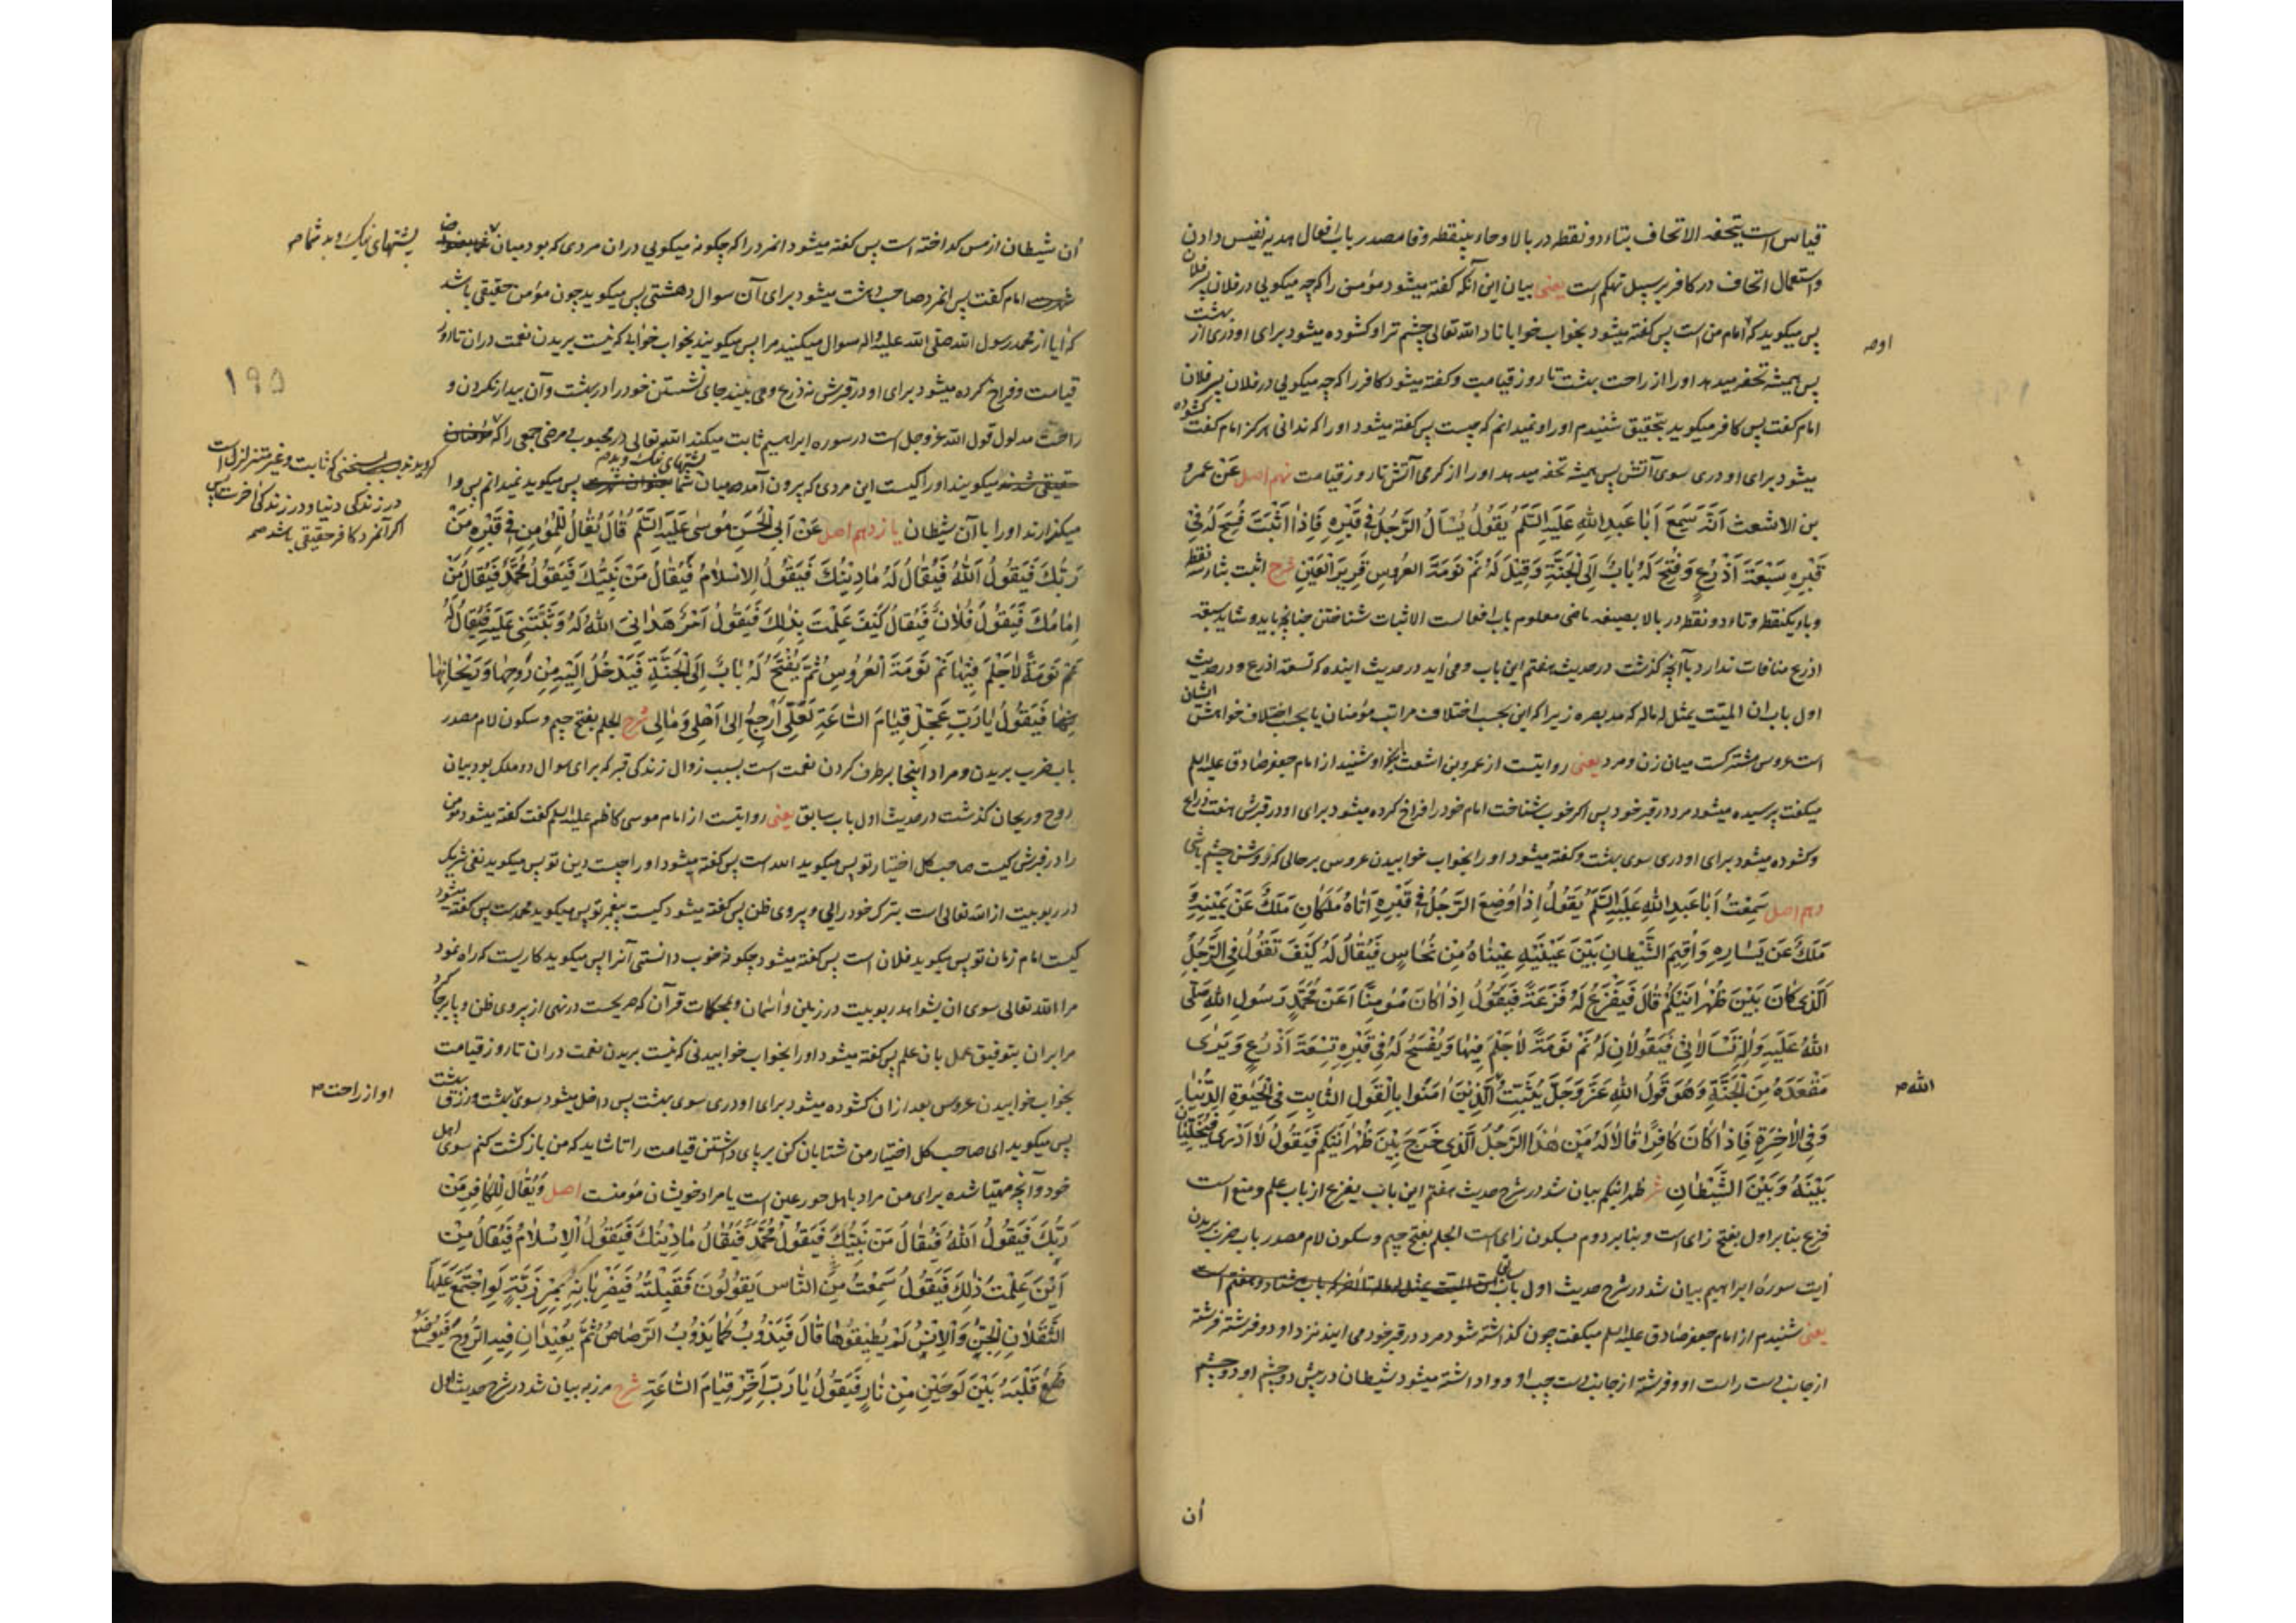 قیاس است یتحفه الاتحاف بتاء دو نقطه در بالا و حاء بینقطه و فا مصدر باب افعال هدیه نفیس دادن
و استعمال اتحاف در کافر بر سبیل تهکم است یعنی بیان این آنکه کفته میشود مؤمن را که چه میکویی در فلان پسر فلان
پس میکوید که امام من است پس کفته میشود بخواب خواباناد الله تعالی چشم ترا و کشوده میشود برای او دری از بهشت
اوصه
پس همیشه تحفه میدهد او را از راحت بهشت تا روز قیامت و کفته میشود کافر را که چه میکویی در فلان پسر فلان
امام کفت پس کافر میکوید بتحقیق شنیدم او را و نمیدانم که چیست پس کفته میشود او را که ندانی هرکز امام کفت کشوده
میشود برای او دری سوی آتش پس همیشه تحفه میدهد او را از کرمی آتش تا روز قیامت نهم اصل عَنْ عمرو
بن الاشعث اَنَّهُ سَمِعَ اَبَا عَبدِ اللهِ عَلَیهِ السَّلَم یَقُولُ یُسْاَلُ الرَّجُلُ فِی قَبْرِهِ فَاِذَا اَثْبَتَ فُسِحَ لَهُ فِی
قَبْرِهِ سَبْعَةَ اَذْرُعٍ وَفُتِحَ لَهُ بَابٌ اِلَی الْجَنَّةِ وَقِیْلَ لَهُ نَمْ نَوْمَةَ العَرُوسِ قَرِیرَ الْعَیْنِ شرح اثبت بثاء سه نقطه
و باء یکنقطه و تاء دو نقطه در بالا بصیغه ماضی معلوم باب افعالست الاثبات شناختن چنانچه باید و شاید سبعه
اذرع منافات ندارد با آنچه کذشت در حدیث هفتم این باب و می آید در حدیث آینده که تسعة اذرع و در حدیث
اول باب ان المیت یمثل له ماله که مد بصره زیرا که این بحسب اختلاف مراتب مؤمنان یا بحسب اختلاف خواهش ایشان
است عروس مشترکست میان زن و مرد یعنی روایتست از عمرو بن اشعث که او شنید از امام جعفر صادق علیه السلم
میکفت پرسیده میشود مرد در قبر خود پس اکر خوب شناخت امام خود را فراخ کرده میشود برای او در قبرش هفت ذراع
و کشوده میشود برای او دری سوی بهشت و کفته میشود او را بخواب خوابیدن عروس بر حالی که روشن چشم باشی
دهم اصل سَمِعْتُ اَبَا عَبدِ اللهِ عَلَیهِ السَّلَم یَقُولُ اِذَا وُضِعَ الرَّجُلُ فِی قَبْرِهِ اَتَاهُ مَلَکَانِ مَلَکٌ عَنْ یَمِیْنِهِ وَ
مَلَکٌ عَن یَسَارِهِ وَاُقِیمَ الشَّیْطَانُ بَیْنَ عَیْنَیْهِ عَیْنَاهُ مِنْ نُحَاسٍ فَیُقَالُ لَهُ کَیْفَ تَقُولُ فِی الرَّجُلِ
الَّذِی کَانَ بَیْنَ ظَهْرَانَیْکُمْ قَالَ فَیَفْزَعُ لَهُ فَزْعَةً فَیَقُولُ اِذَا کَانَ مُؤمِنًا اَعَنْ مُحَمَّدٍ رَسُولِ اللهِ صَلَّی
اللهُ عَلَیهِ وَاٰلِهِ تَسْاَلَانِی فَیَقُولَانِ لَهُ نَمْ نَوْمَةً لَا حُلْمَ فِیهَا وَیُفْسَحُ لَهُ فِی قَبْرِهِ تِسْعَةَ اَذْرُعٍ وَیَرٰی
مَقْعَدَهُ مِنَ الْجَنَّةِ وَهُوَ قَولُ اللهِ عَزَّ وَجَلَّ یُثَبِّتُ الَّذِینَ اٰمَنُوا بِالْقَولِ الثَّابِتِ فِی الْحَیٰوةِ الدُّنْیَا
الله صه
وَفِی الْاٰخِرَةِ فَاِذَا کَانَ کَافِرًا قَالَا لَهُ مَنْ هٰذَا الرَّجُلُ الَّذِی خَرَجَ بَیْنَ ظَهْرَانَیْکُم فَیَقُولُ لَا اَدْرِی فَیُخَلِّیَانِ
بَیْنَهُ وَبَیْنَ الشَّیْطَانِ ش ظهرانیکم بیان شد در شرح حدیث هفتم این باب یفزع از باب علم و منع است
فزع بنابر اول بفتح زای است و بنابر دوم بسکون زای است الحلم بفتح جیم و سکون لام مصدر باب ضرب بریدن
آیت سورهٔ ابراهیم بیان شد در شرح حدیث اول باب سابق
یعنی شنیدم از امام جعفر صادق علیه السلم میکفت چون کذاشته شود مرد در قبر خود می آیند نزد او دو فرشته فرشته
از جانب دست راست او و فرشته از جانب دست چپ او و واداشته میشود شیطان در پیش دو چشم او دو چشم
آن
آن شیطان از مس کداخته است پس کفته میشود آنمرد را که چکونه میکویی در آن مردی که بود میان
پشتهای نیک و بد شما صه
امام کفت پس آنمرد صاحب دهشت میشود برای آن سوال دهشتی پس میکوید چون مؤمن حقیقی باشد
که آیا از محمد رسول الله صلی الله علیه و اله سوال میکنید مرا پس میکویند بخواب خوابی که نیست بریدن نعمت در آن تا روز
قیامت و فراخ کرده میشود برای او در قبرش نه ذرع و می بیند جای نشستن خود را در بهشت و آن بیدار نکردن و
۱۹۵
راحت مدلول قول الله عز و جل است در سوره ابراهیم ثابت میکند الله تعالی در محبوب و مرضی جمعی را که
کرویدند بسخنی که ثابت و غیر متزلزل است
در زندکی دنیا و در زندکی آخرت پس
اکر آنمرد کافر حقیقی باشد صه
میکویند او را کیست این مردی که بیرون آمد میان پشتهای نیک و بد شما پس میکوید نمیدانم پس وا
میکذارند او را با آن شیطان یازدهم اصل عَنْ اَبِی الْحَسَنِ مُوسٰی عَلَیهِ السَّلَم قَالَ یُقَالُ لِلْمُؤمِنِ فِی قَبْرِهِ مَنْ
رَبُّکَ فَیَقُولُ اَللهُ فَیُقَالُ لَهُ مَا دِیْنُکَ فَیَقُولُ الاِسْلَامُ فَیُقَالُ مَنْ نَبِیُّکَ فَیَقُولُ مُحَمَّدٌ فَیُقَالُ مَنْ
اِمَامُکَ فَیَقُولُ فُلَانٌ فَیُقَالُ کَیْفَ عَلِمْتَ بِذٰلِکَ فَیَقُولُ اَمْرٌ هَدَانِیَ اللهُ لَهُ وَثَبَّتَنِی عَلَیهِ فَیُقَالُ لَهُ
نَمْ نَوْمَةً لَا حُلْمَ فِیهَا نَمْ نَوْمَةَ الْعَرُوسِ ثُمَّ یُفْتَحُ لَهُ بَابٌ اِلَی الْجَنَّةِ فَیَدْخُلُ اِلَیْهِ مِنْ رَوحِهَا وَرَیْحَانِهَا
فَیَقُولُ یَا رَبِّ عَجِّلْ قِیَامَ السَّاعَةِ لَعَلِّی اَرْجِعُ اِلٰی اَهْلِی وَمَالِی شرح الجلم بفتح جیم و سکون لام مصدر
باب ضرب بریدن و مراد اینجا برطرف کردن نعمت است بسبب زوال زندکی قبر که برای سوال دو ملک بود بیان
روح و ریحان کذشت در حدیث اول باب سابق یعنی روایتست از امام موسی کاظم علیه السلم کفت کفته میشود مؤمن
را در قبرش کیست صاحب کل اختیار تو پس میکوید الله است پس کفته میشود او را چیست دین تو پس میکوید نفی شریک
در ربوبیت از الله تعالی است بترک خودرایی و پیروی ظن پس کفته میشود کیست پیغمبر تو پس میکوید محمدست پس کفته میشود
کیست امام زمان تو پس میکوید فلان است پس کفته میشود چکونه خوب دانستی آنرا پس میکوید کاریست که راه نمود
مرا الله تعالی سوی آن بشواهد ربوبیت در زمین و آسمان و بمحکمات قرآن که صریحست در نهی از پیروی ظن و پابرجا کرد
مرا بر آن بتوفیق عمل بآن علم پس کفته میشود او را بخواب خوابیدنی که نیست بریدن نعمت در آن تا روز قیامت
بخواب خوابیدن عروس بعد از آن کشوده میشود برای او دری سوی بهشت پس داخل میشود سوی
او از راحت صه
پس میکوید ای صاحب کل اختیار من شتابان کن برپای داشتن قیامت را تا شاید که من بازکشت کنم سوی اهل
خود و آنچه مهیا شده برای من مراد باهل حور عین است یا مراد خویشان مؤمنست اصل وَیُقَالُ لِلکَافِرِ مَنْ
رَبُّکَ فَیَقُولُ اَللهُ فَیُقَالُ مَنْ نَبِیُّکَ فَیَقُولُ مُحَمَّدٌ فَیُقَالُ مَا دِیْنُکَ فَیَقُولُ الْاِسْلَامُ فَیُقَالُ مِنْ
اَیْنَ عَلِمْتَ ذٰلِکَ فَیَقُولُ سَمِعْتُ مِنَ النَّاسِ یَقُولُونَ فَقُلْتُهُ فَیَضْرِبَانِهِ بِمِرْزَبَّةٍ لَوِ اجْتَمَعَ عَلَیهَا
الثَّقَلَانِ الْجِنُّ وَالْاِنْسُ لَمْ یُطِیْقُوهَا قَالَ فَیَذُوبُ کَمَا یَذُوبُ الرَّصَاصُ ثُمَّ یُعِیْدَانِ فِیهِ الرُّوحَ فَیُوضَعُ
قَلْبُهُ بَیْنَ لَوحَیْنِ مِنْ نَارٍ فَیَقُولُ یَا رَبِّ اَخِّرْ قِیَامَ السَّاعَةِ شرح مرزبه بیان شد در شرح حدیث اول